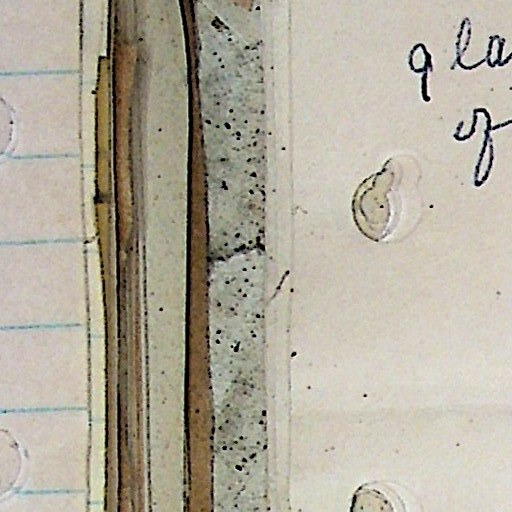 gla
of